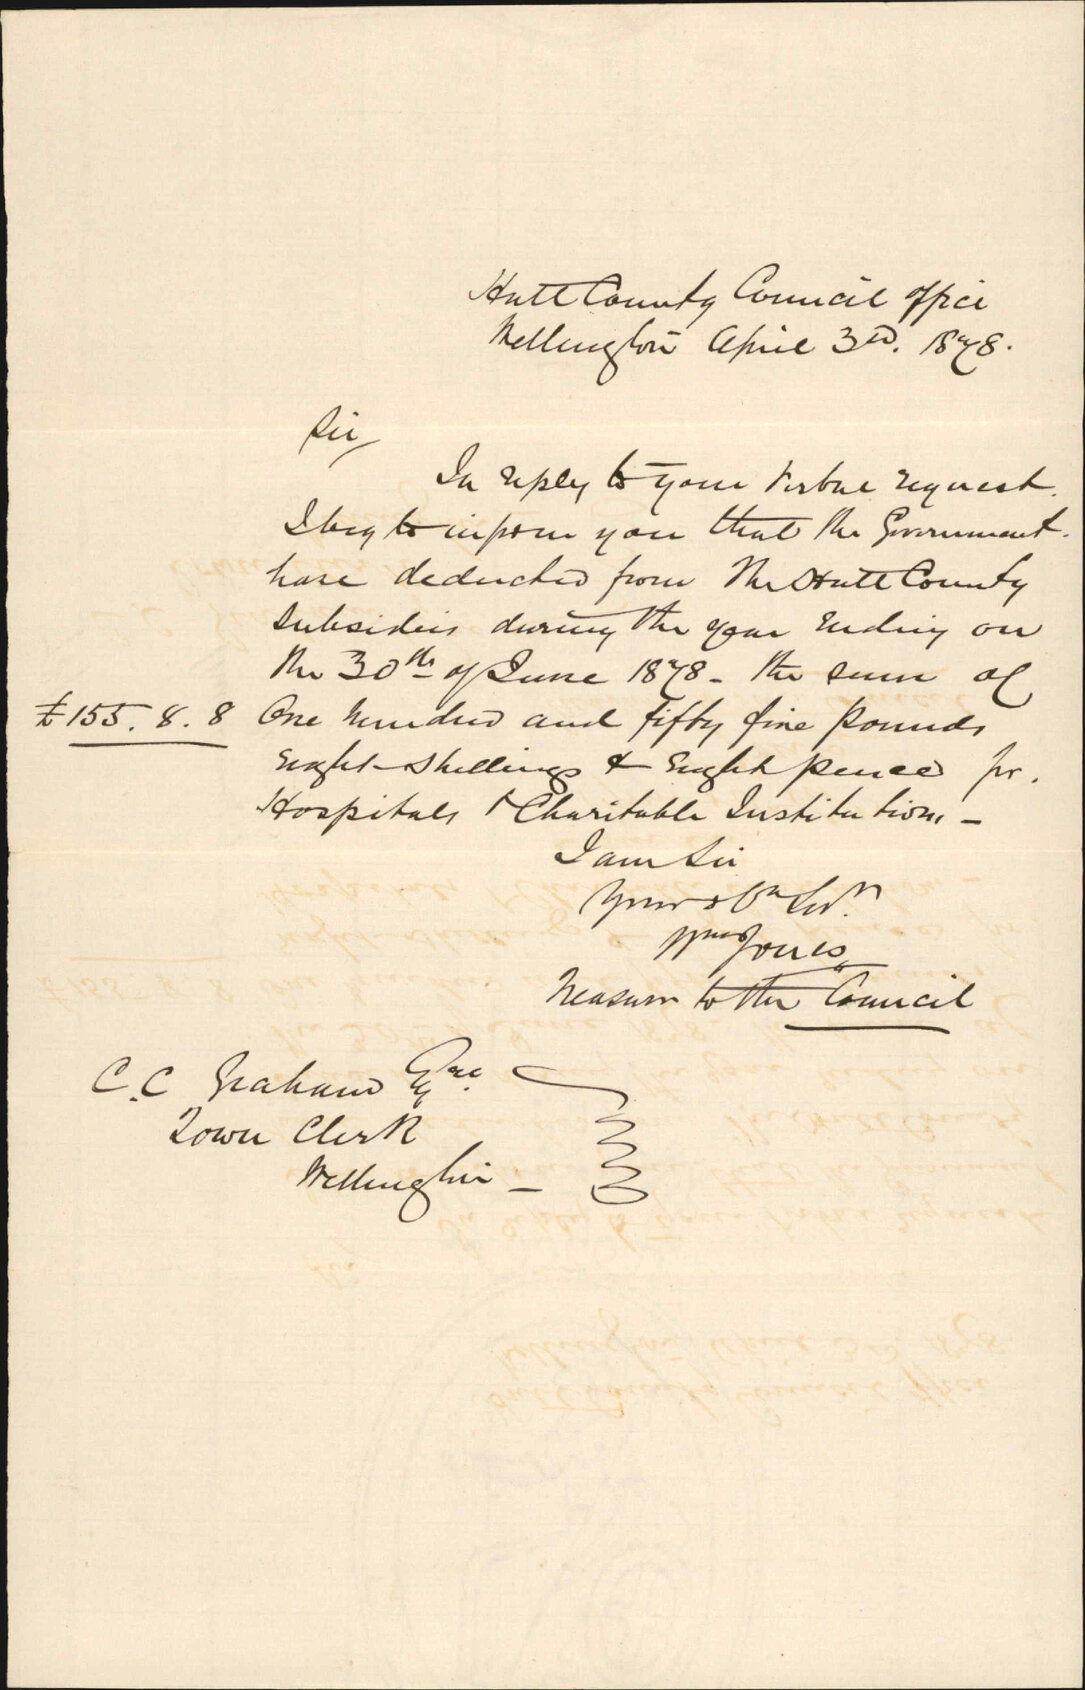 Hutt County Council Office
Wellington April 3rd. 1878.
Sir/
In reply to your verbal request.
I beg to inform you that the Government.
have deducted from the Hutt County
Subsidies during the year Ending on
the 30th of June 1878 - the sum of
£155. 8. 8 One hundred and fifty five pounds
Eight Shillings & Eight pence for.
Hospitals & Charitable Institutions -
I am Sir
Your Ob Servt.
Wm Jones
Treasurer to the Council
C.C Graham Esqre.
Town Clerk
Wellington -